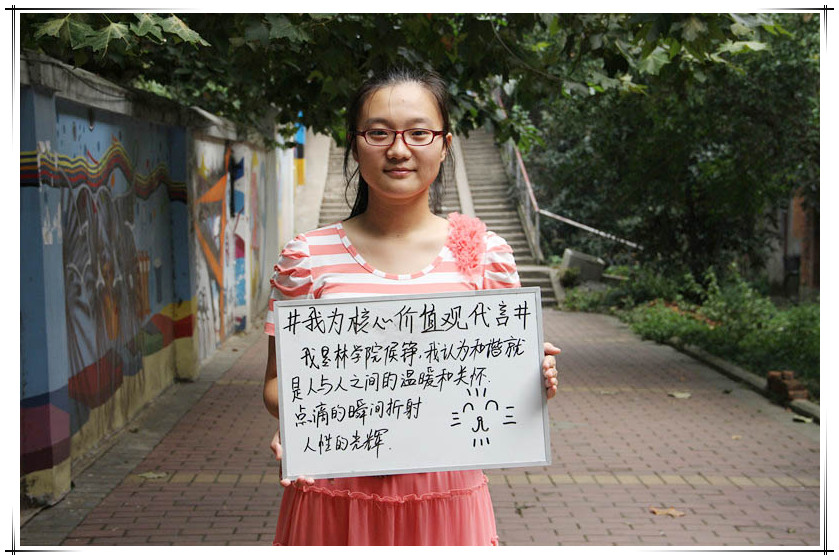 #我为核心价值观代言#
我是林学院侯铮,我认为和谐就
是人与人之间的温暖和关怀.
点滴的瞬间折射
人性的光辉.